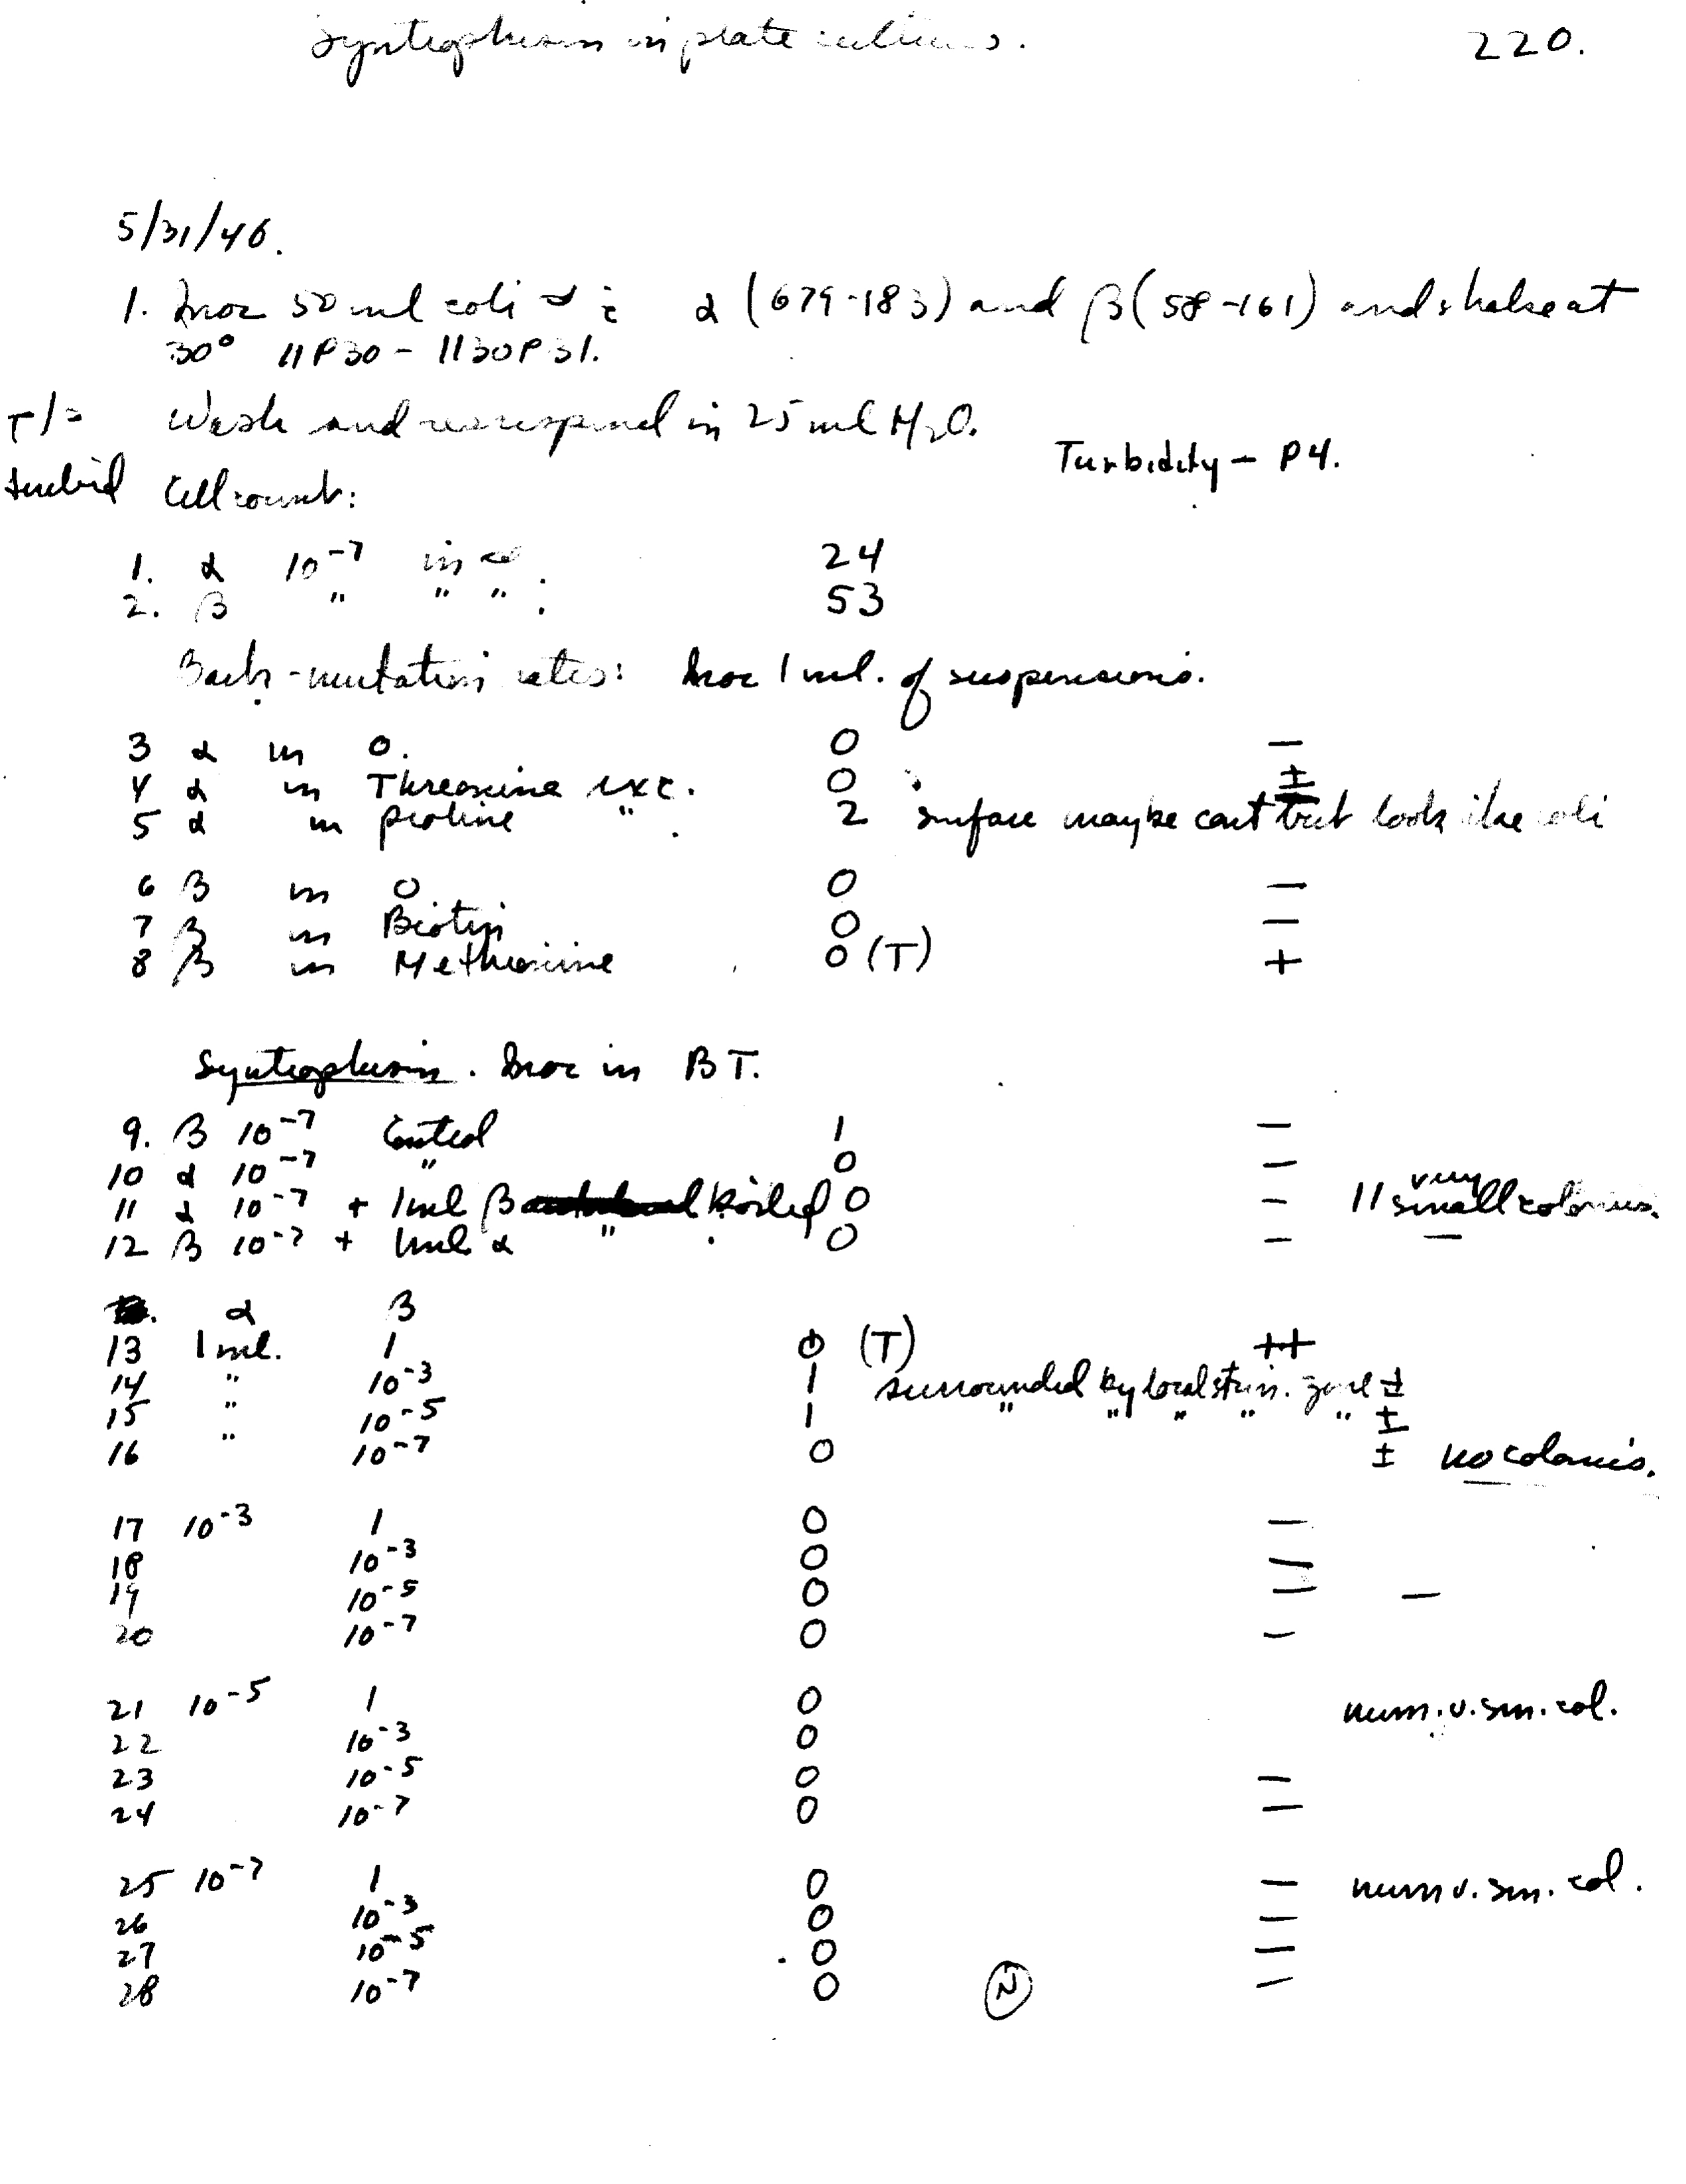 Syntrophism in plate cultures. 220.
5/31/46.
1. Inoc 50 ml coli c̄ α (679-183) and β (58-161) and shake at
30° 11P30 - 1130P31.
T/= Wash and resuspend in 25 ml H2O.
Turbidity - P4.
turbid Cell count:
1. α 10⁻⁷ in 24
2. β " " " . 53
Back-mutation rates: Inoc 1 ml. of suspensions.
3 α in 0. 0 —
4 α in Threonine exc. 0 ±
5 α in proline " . 2 surface maybe cont but look like coli
6 β in 0 0 —
7 β in Biotin 0 —
8 β in Methionine 0 (T) +
Syntrophism. Inoc in BT.
9. β 10⁻⁷ Control 1 —
10 α 10⁻⁷ " 0 —
11 α 10⁻⁷ + 1 ml β boiled 0 — 11 very small colonies.
12 β 10⁻⁷ + 1 ml α " . 0 — —
α β
13 1 ml. 1 0 (T) ++
14 " 10⁻³ 1 surrounded by local stim. zone ±
15 " 10⁻⁵ 1 " " " " " ±
16 " 10⁻⁷ 0 ± no colonies.
17 10⁻³ 1 0 —
18 10⁻³ 0 —
19 10⁻⁵ 0 — —
20 10⁻⁷ 0 —
21 10⁻⁵ 1 0 num. v. sm. col.
22 10⁻³ 0
23 10⁻⁵ 0 —
24 10⁻⁷ 0 —
25 10⁻⁷ 1 0 — num v. sm. col.
26 10⁻³ 0 —
27 10⁻⁵ 0 —
28 10⁻⁷ 0 N —